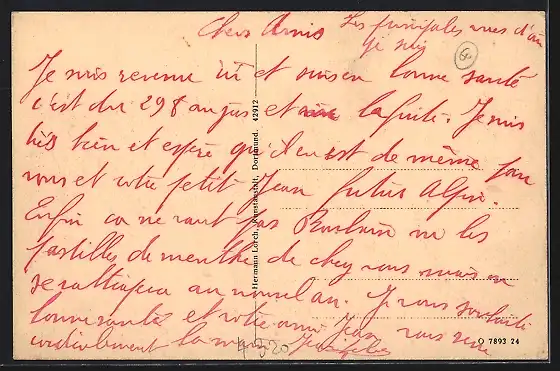 Chers Amis Les principales rues d'où
je suis
Je suis revenu ici et suis en bonne santé
c'est du 298 au jus et la fuite. Je suis
très bien et espère qu'il en est de même pour
vous et votre petit Jean futur Alpin.
Enfin ça ne vaut pas ni les
pastilles de menthe de chez vous mais on
se rattrapera au nouvel an. Je vous souhaite
bonne santé et votre ami vous serre
cordialement la main
Hermann Lorch, Kunstanstalt, Dortmund. 42912
O 7893 24